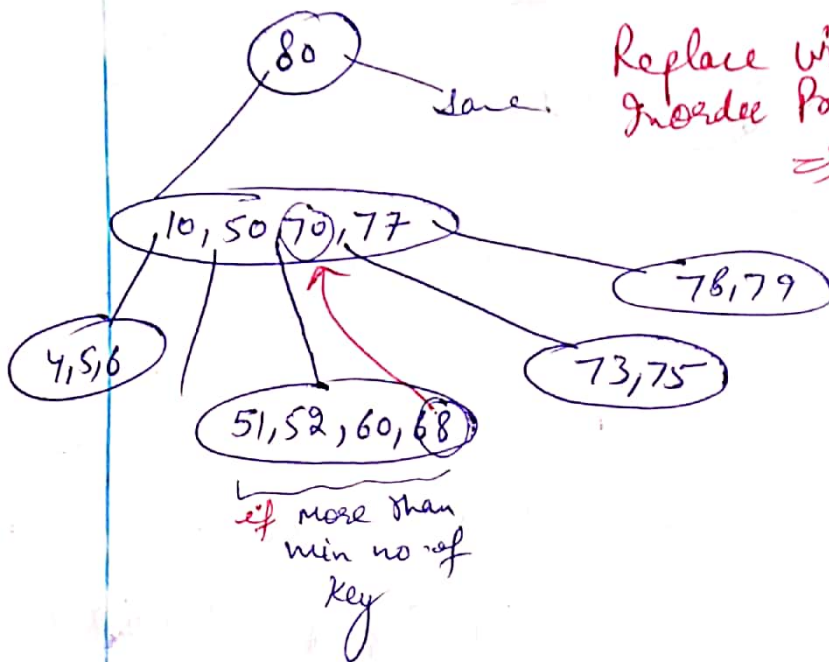 80
same.
Replace wi
Inorder P
⇒
10, 50 70, 77
78, 79
4, 5, 6
73, 75
51, 52, 60, 68
if more than
min no. of
Key